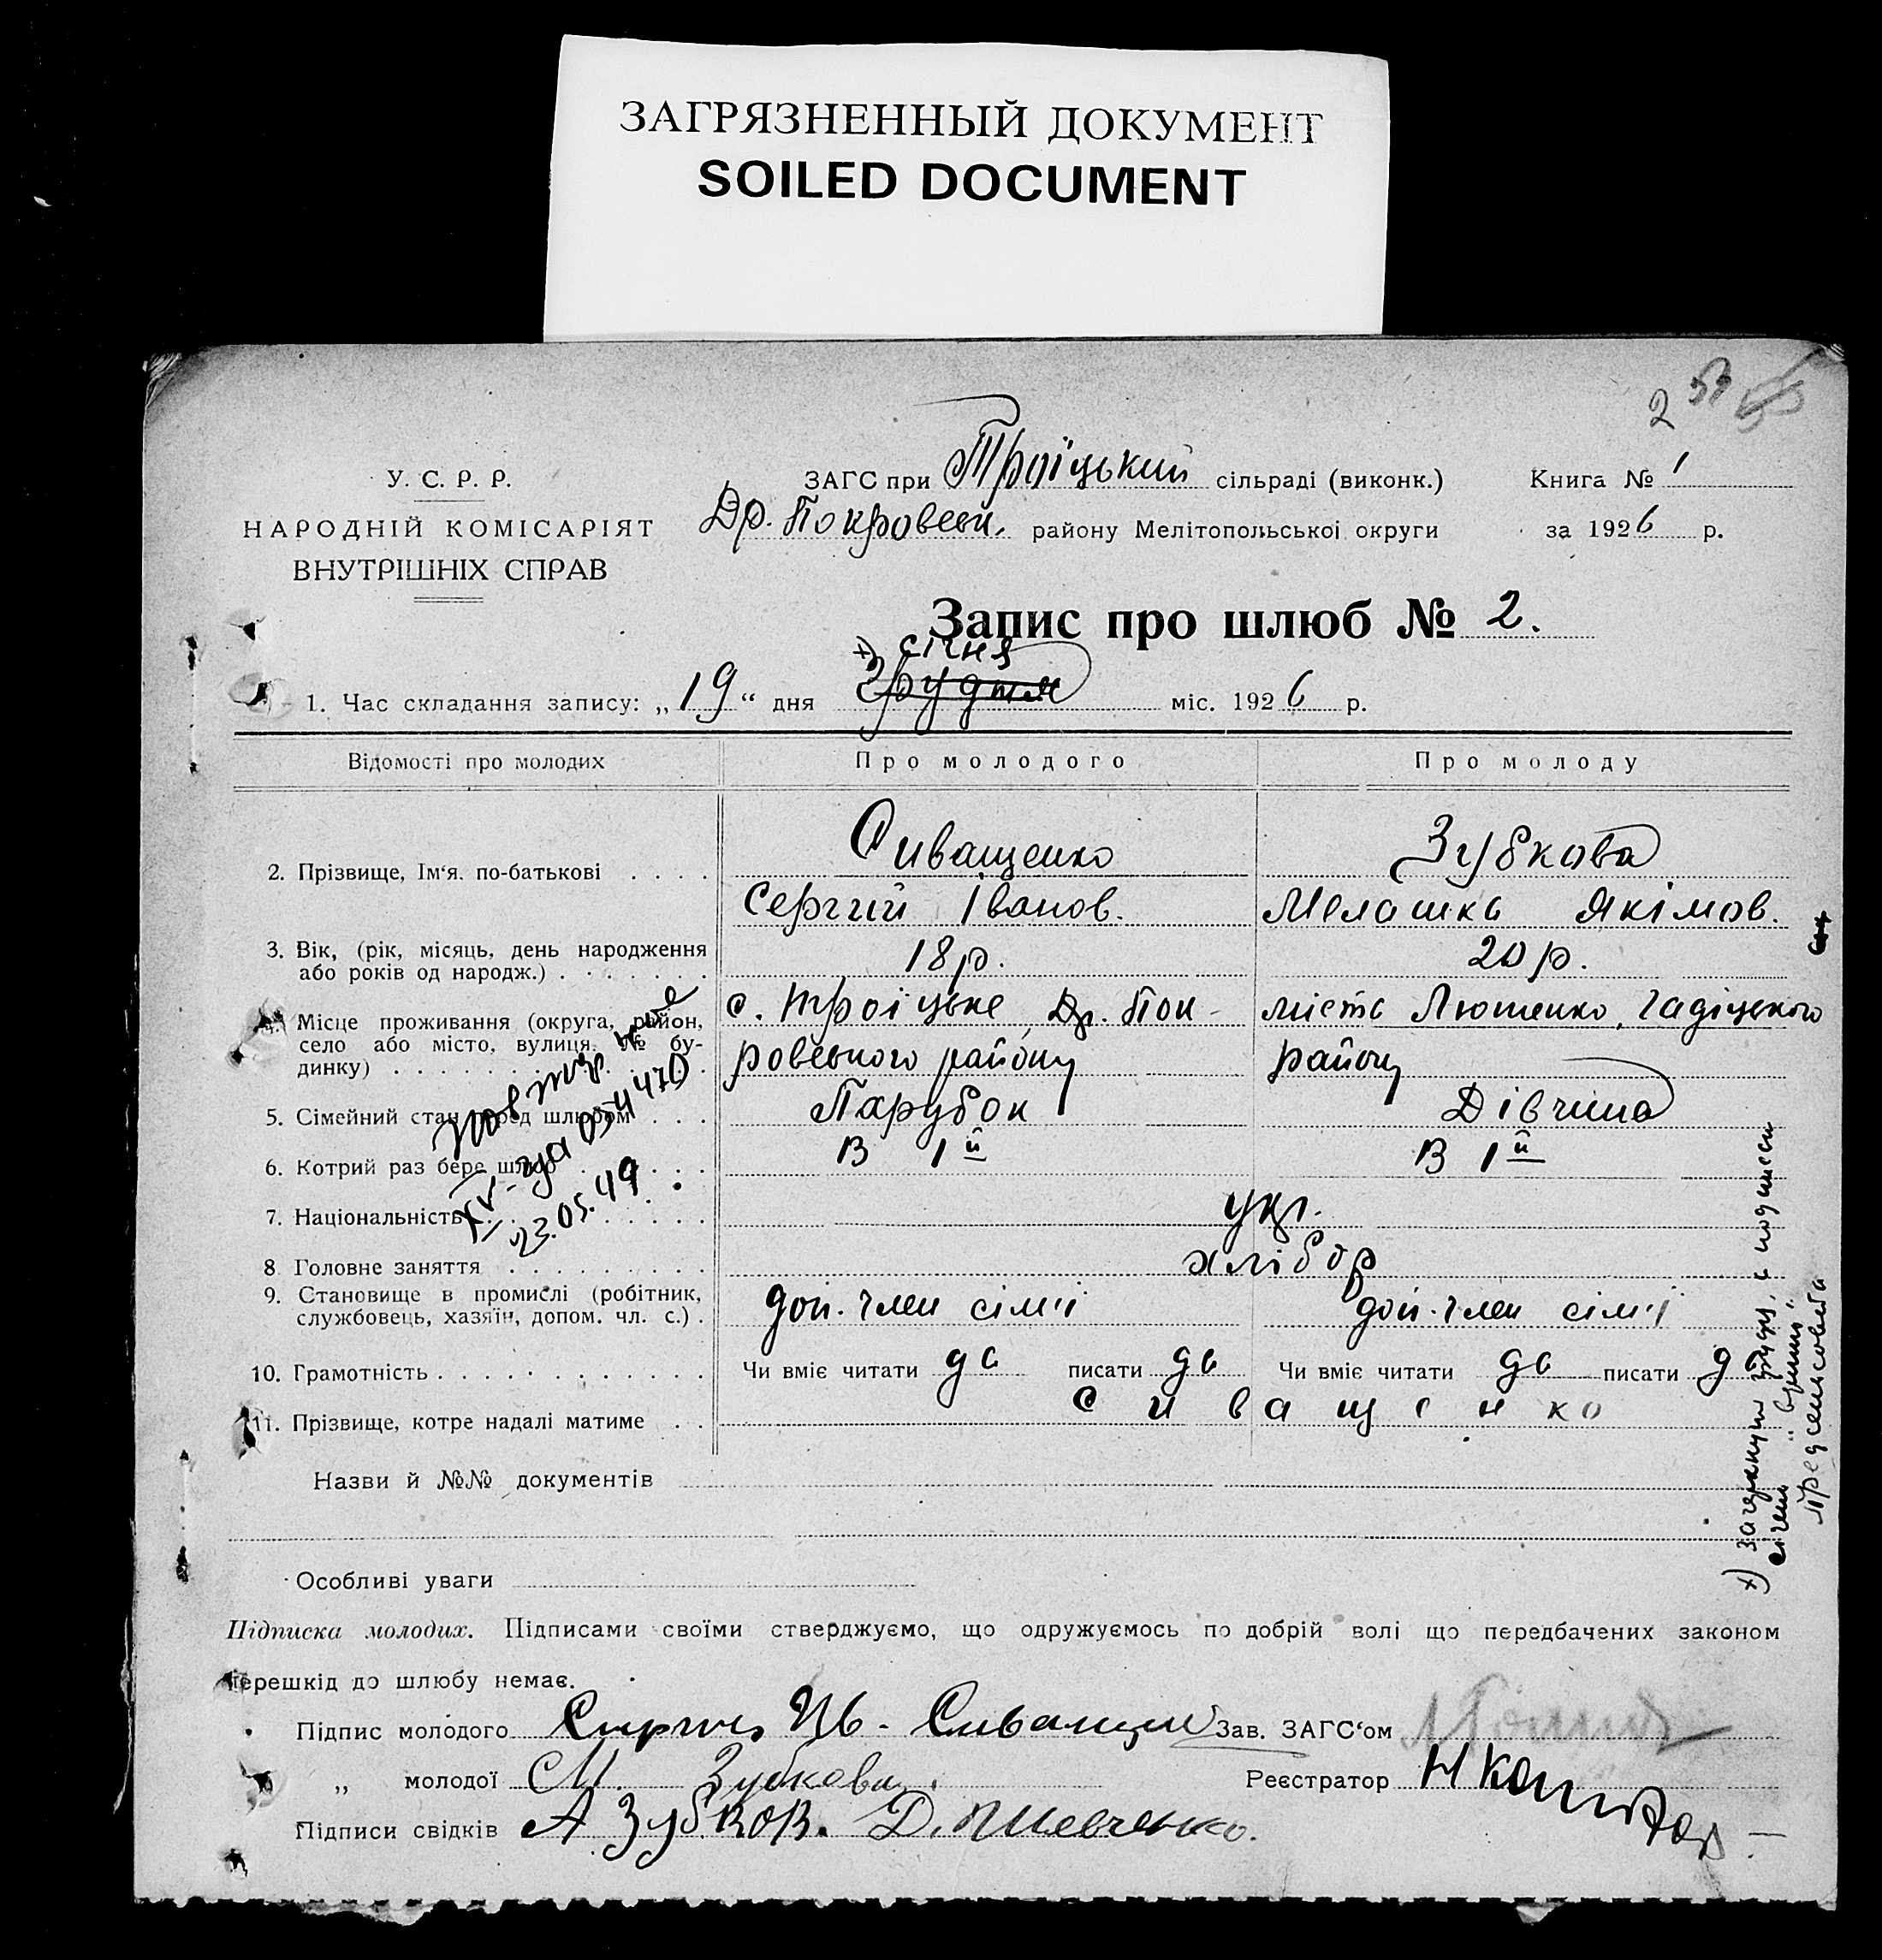 ЗАГРЯЗНЕННЫЙ ДОКУМЕНТ
SOILED DOCUMENT
2
У. С. Р. Р.
НАРОДНІЙ КОМІСАРІЯТ
ВНУТРІШНІХ СПРАВ
ЗАГС при Троїцький сільраді (виконк.)
Др. Покровськ. району Мелітопольської округи
Книга № 1
за 1926 р.
Запис про шлюб № 2.
х) січня
1. Час складання запису: „19“ дня грудня міс. 1926 р.
Відомості про молодих Про молодого Про молоду
2. Прізвище, Ім'я. по-батькові . . . . Сиващенко Зубкова
Сергій Іванов. Мелашка Якімов.
3. Вік, (рік, місяць, день народження
або років од народж.) . . . . . . . 18 р. 20 р.
4. Місце проживання (округа, район,
село або місто, вулиця, № бу-
динку) . . . . . . . . . . . .
с. Троіцьке, Др. Пок-
ровського району
місто Лютенко, Гадіцького
району
5. Сімейний стан перед шлюбом . . . Парубок Дівчина
6. Котрий раз бере шлюб . . . . . . В 1й В 1й
7. Національність . . . . . . . . . укр.
8 Головне заняття . . . . . . . . . хлібор
9. Становище в промислі (робітник,
службовець, хазяїн, допом. чл. с.) . доп. член сім'ї доп. член сім'ї
10. Грамотність . . . . . . . . . . . . Чи вміє читати да писати да Чи вміє читати да писати да
11. Прізвище, котре надалі матиме . . Сиващенко
23.05.49
Назви й №№ документів
Особливі уваги
Підписка молодих. Підписами своїми стверджуємо, що одружуємось по добрій волі що передбачених законом
перешкід до шлюбу немає.
Підпис молодого Сиващен Зав. ЗАГС'ом
„ молодої М. Зубкова. Реєстратор
Підписи свідків А Зубков. Д. Шевченко.